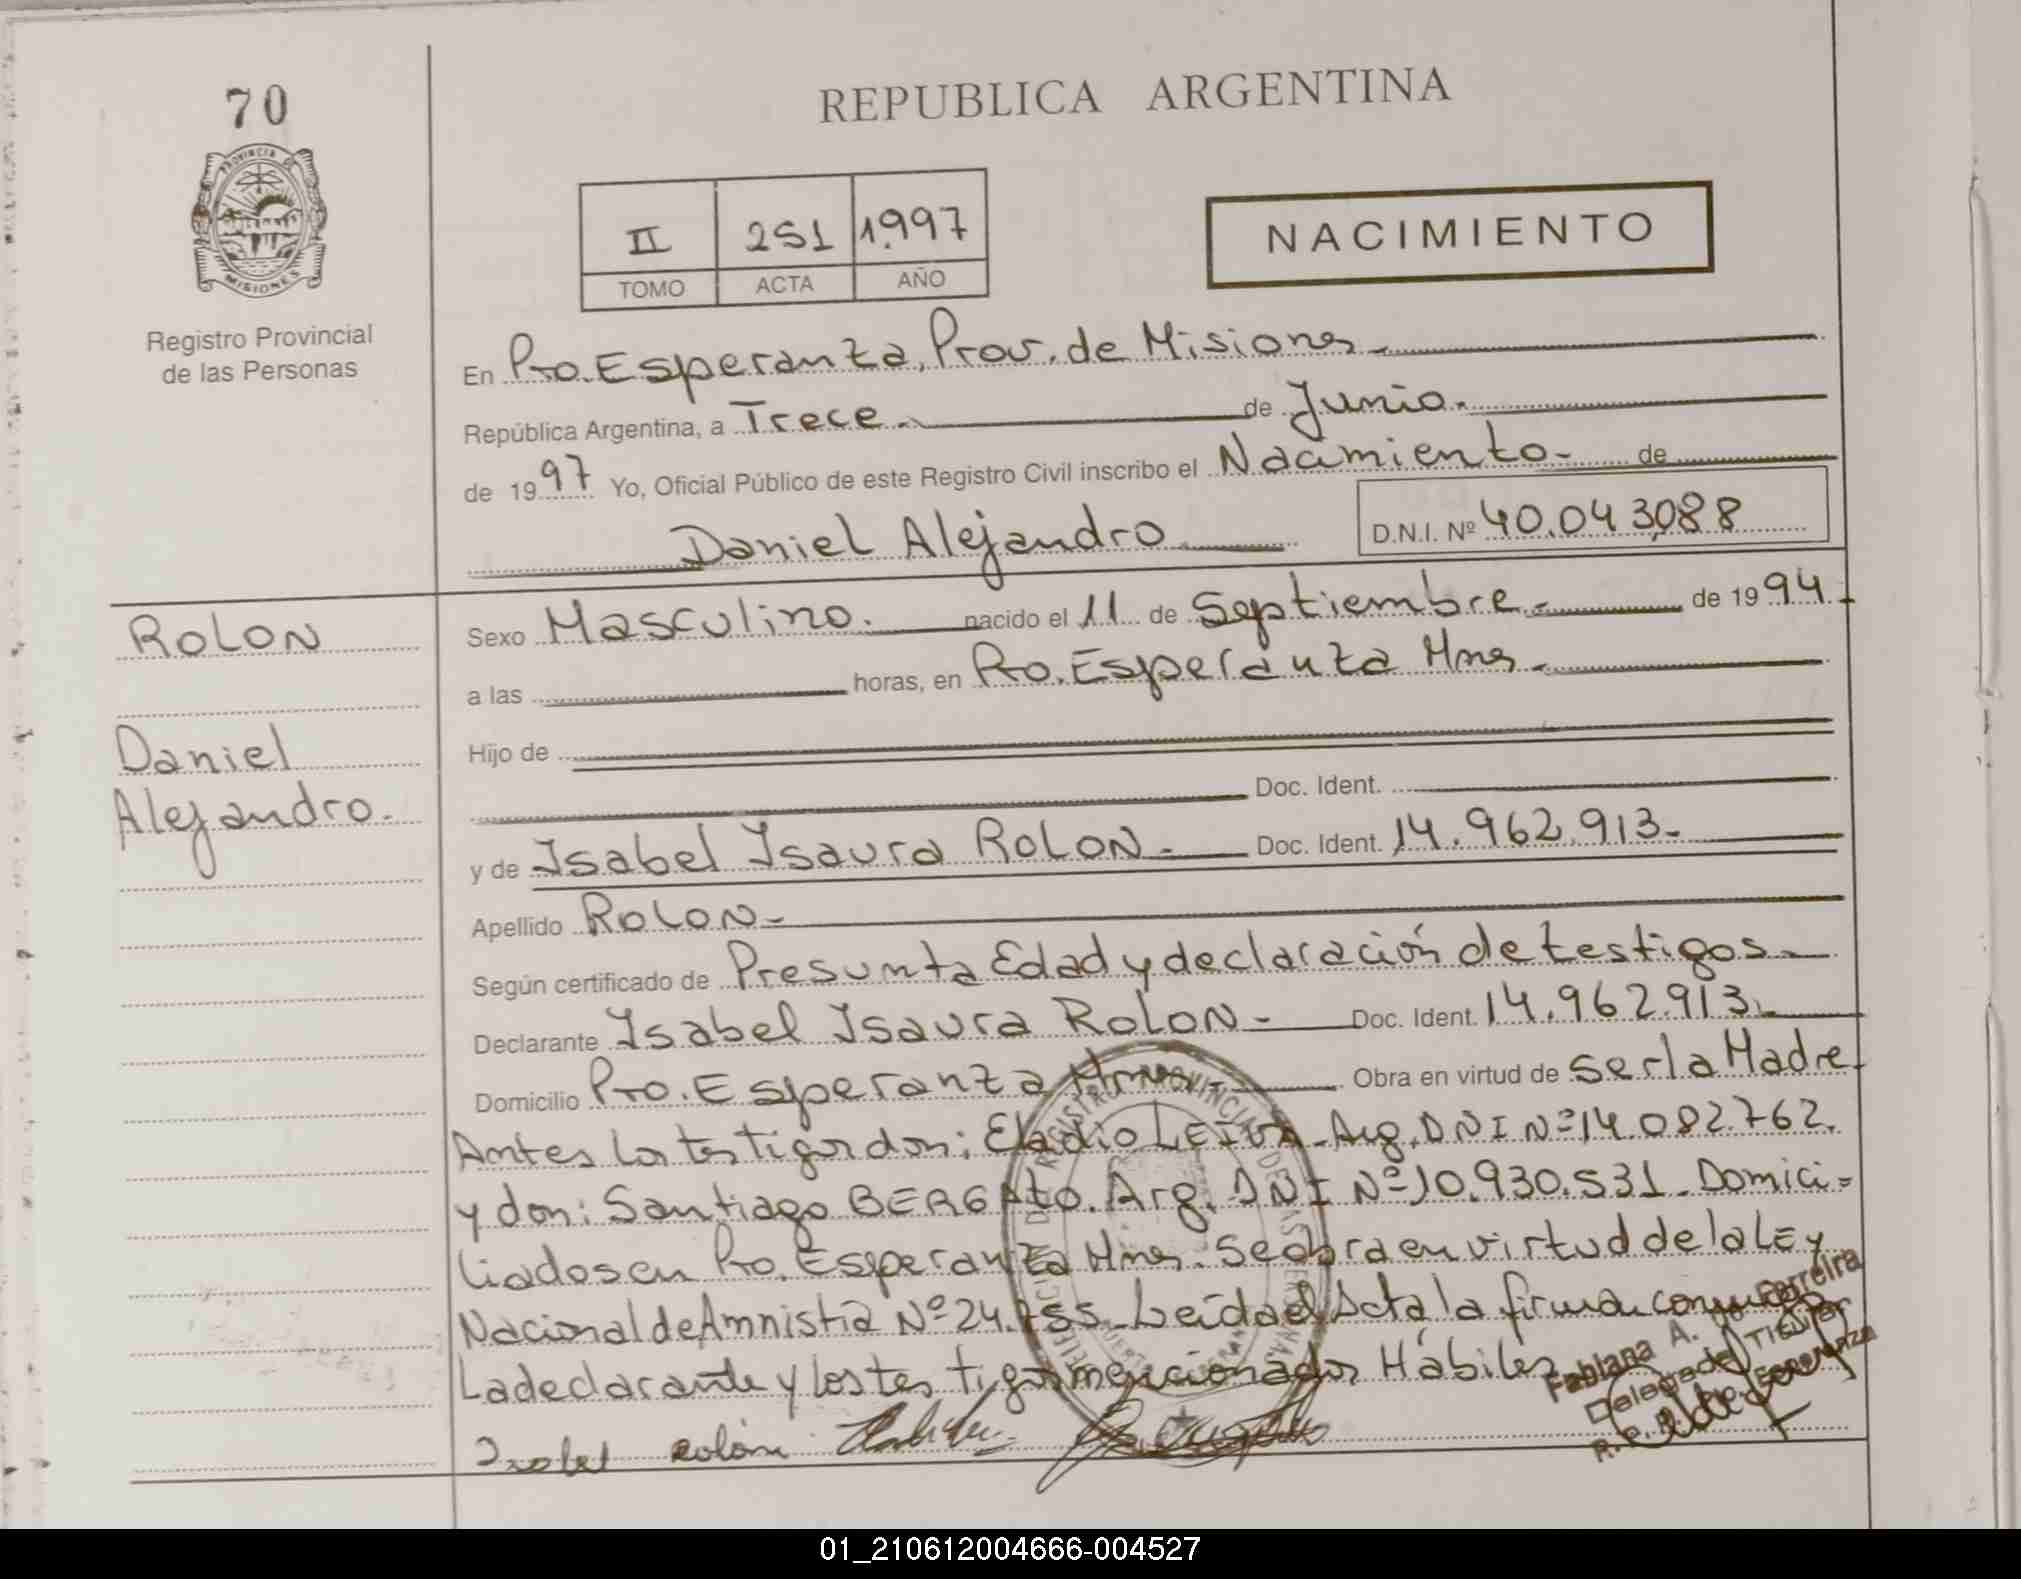 70
PROVINCIA DE
MISIONES
Registro Provincial
de las Personas
REPUBLICA ARGENTINA
II 251 1.997
TOMO ACTA AÑO
NACIMIENTO
En Pto. Esperanza, Prov. de Misiones
República Argentina, a Trece de Junio
de 1997 Yo, Oficial Público de este Registro Civil inscribo el Nacimiento de
Daniel Alejandro D.N.I. Nº 40.043.088
ROLON
Daniel
Alejandro.
Sexo Masculino. nacido el 11 de Septiembre de 1994
a las horas, en Pto. Esperanza Mnes
Hijo de
Doc. Ident.
y de Isabel Isaura ROLON Doc. Ident. 14.962.913
Apellido ROLON
Según certificado de Presunta Edad y declaración de testigos
Declarante Isabel Isaura ROLON Doc. Ident. 14.962.913
Domicilio Pto. Esperanza Mnes Obra en virtud de ser la Madre
Antes los testigos don: Eladio LEIVA Arg. DNI Nº 14.082.762.
y don: Santiago Arg. DNI Nº 10.930.531 Domici=
liados en Pto. Esperanza Mnes. Se obra en virtud de la Ley
Nacional de Amnistia Nº 24.755 Leída el Acta la firman conmigo
La declarante y los testigos mencionados Hábiles
Isabel Rolón
Fabiana A. Ferreira
Delegada Titular
R. P. P. Pto. Esperanza
01_210612004666-004527